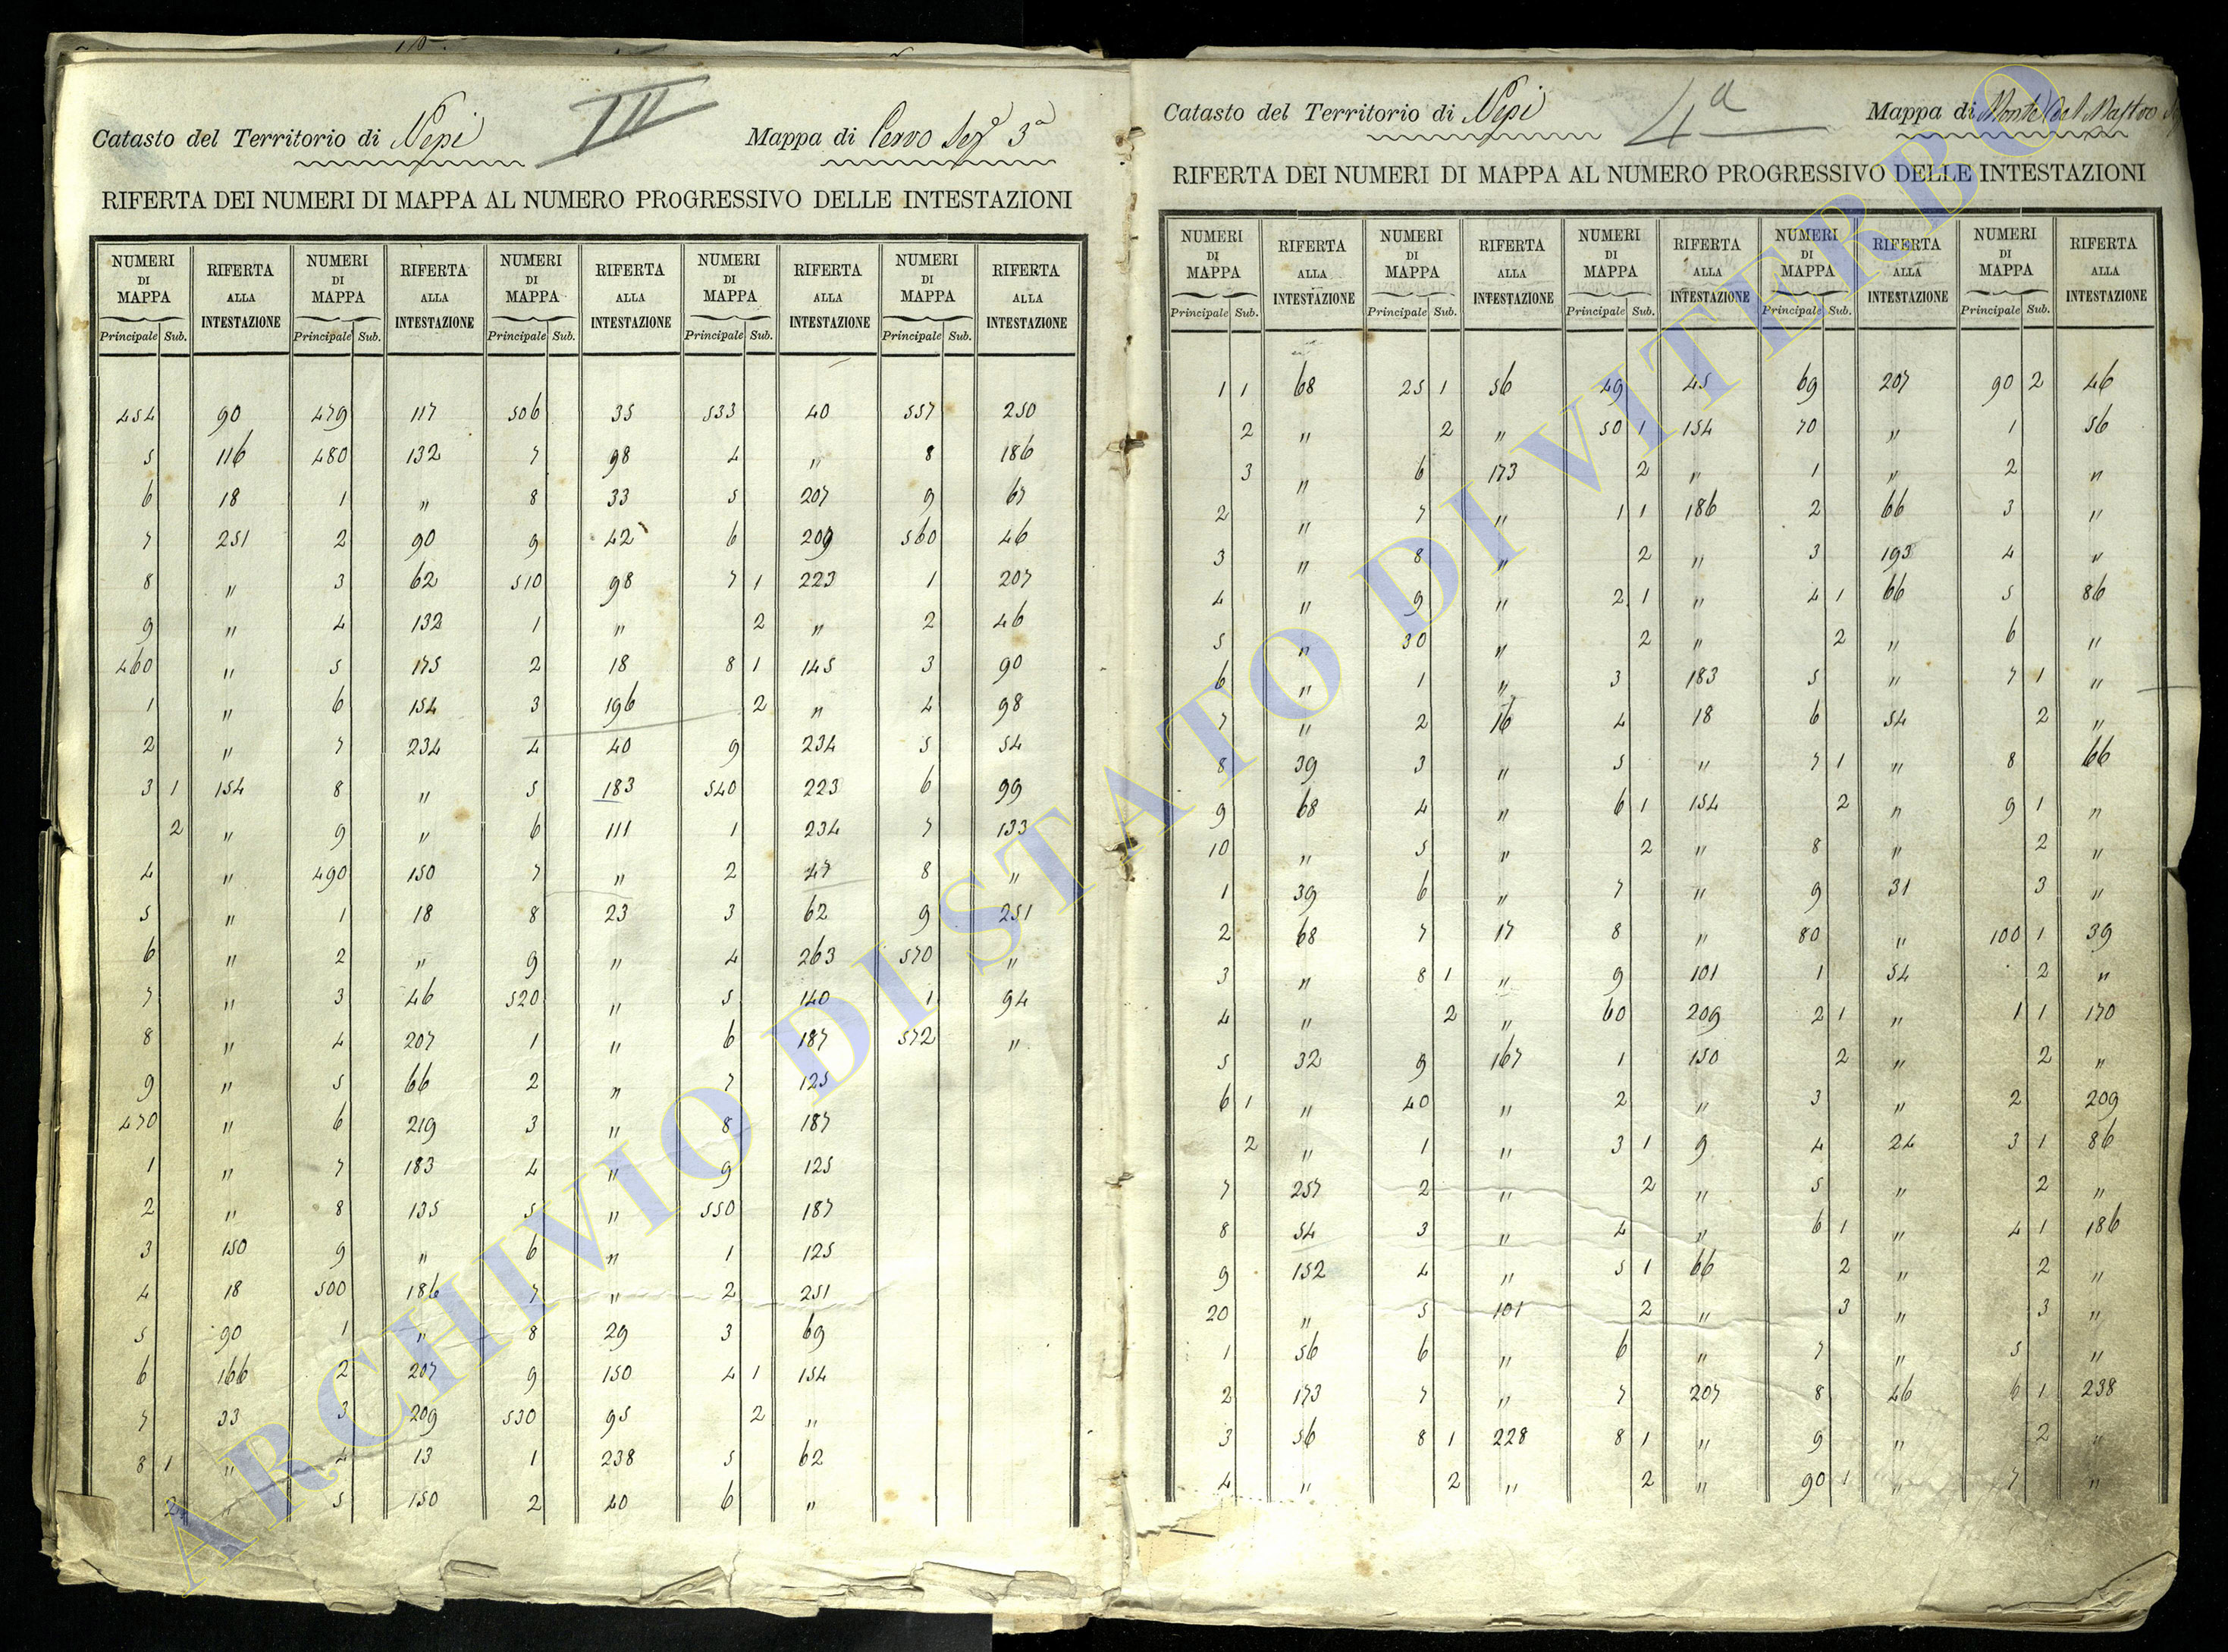 III
Catasto del Territorio di Nepi Mappa di Cervo Sez.e 3a
RIFERTA DEI NUMERI DI MAPPA AL NUMERO PROGRESSIVO DELLE INTESTAZIONI
NUMERI DI MAPPA RIFERTA ALLA INTESTAZIONE NUMERI DI MAPPA RIFERTA ALLA INTESTAZIONE NUMERI DI MAPPA RIFERTA ALLA INTESTAZIONE NUMERI DI MAPPA RIFERTA ALLA INTESTAZIONE NUMERI DI MAPPA RIFERTA ALLA INTESTAZIONE
Principale Sub. Principale Sub. Principale Sub. Principale Sub. Principale Sub.
454 90 479 117 506 35 533 40 557 250
5 116 480 132 7 98 4 " 8 186
6 18 1 " 8 33 5 207 9 67
7 251 2 90 9 42 6 209 560 46
8 " 3 62 510 98 7 1 223 1 207
9 " 4 132 1 " 2 " 2 46
460 " 5 175 2 18 8 1 145 3 90
1 " 6 154 3 196 2 " 4 98
2 " 7 234 4 40 9 234 5 54
3 1 154 8 " 5 183 540 223 6 99
2 " 9 " 6 111 1 234 7 133
4 " 490 150 7 " 2 47 8 "
5 " 1 18 8 23 3 62 9 251
6 " 2 " 9 " 4 263 570 "
7 " 3 46 520 " 5 140 1 94
8 " 4 207 1 " 6 187 572 "
9 " 5 66 2 " 7 125
470 " 6 219 3 " 8 187
1 " 7 183 4 " 9 125
2 " 8 135 5 " 550 187
3 150 9 " 6 " 1 125
4 18 500 186 7 " 2 251
5 90 1 " 8 29 3 69
6 166 2 207 9 150 4 1 154
7 33 3 209 530 95 2 "
8 1 " 4 13 1 238 5 62
2 " 5 150 2 40 6 "
4a
Catasto del Territorio di Nepi Mappa di Monte del Mastro
RIFERTA DEI NUMERI DI MAPPA AL NUMERO PROGRESSIVO DELLE INTESTAZIONI
NUMERI DI MAPPA RIFERTA ALLA INTESTAZIONE NUMERI DI MAPPA RIFERTA ALLA INTESTAZIONE NUMERI DI MAPPA RIFERTA ALLA INTESTAZIONE NUMERI DI MAPPA RIFERTA ALLA INTESTAZIONE NUMERI DI MAPPA RIFERTA ALLA INTESTAZIONE
Principale Sub. Principale Sub. Principale Sub. Principale Sub. Principale Sub.
1 1 68 25 1 56 49 45 69 207 90 2 46
2 " 2 " 50 1 154 70 " 1 56
3 " 6 173 2 " 1 " 2 "
2 " 7 " 1 1 186 2 66 3 "
3 " 8 " 2 " 3 193 4 "
4 " 9 " 2 1 " 4 1 66 5 86
5 " 30 " 2 " 2 " 6 "
6 " 1 " 3 183 5 " 7 1 "
7 " 2 16 4 18 6 54 2 "
8 39 3 " 5 " 7 1 " 8 66
9 68 4 " 6 1 154 2 " 9 1 "
10 " 5 " 2 " 8 " 2 "
1 39 6 " 7 " 9 31 3 "
2 68 7 17 8 " 80 " 100 1 39
3 " 8 1 " 9 101 1 54 2 "
4 " 2 " 60 209 2 1 " 1 1 170
5 32 9 167 1 150 2 " 2 "
6 1 " 40 " 2 " 3 " 2 209
2 " 1 " 3 1 9 4 24 3 1 86
7 257 2 " 2 " 5 " 2 "
8 54 3 " 4 " 6 1 " 4 1 186
9 152 4 " 5 1 66 2 " 2 "
20 " 5 101 2 " 3 " 3 "
1 56 6 " 6 " 7 " 5 "
2 173 7 " 7 207 8 46 6 1 238
3 56 8 1 228 8 1 " 9 " 2 "
4 " 2 " 2 " 90 1 " 7 "
ARCHIVIO DI STATO DI VITERBO